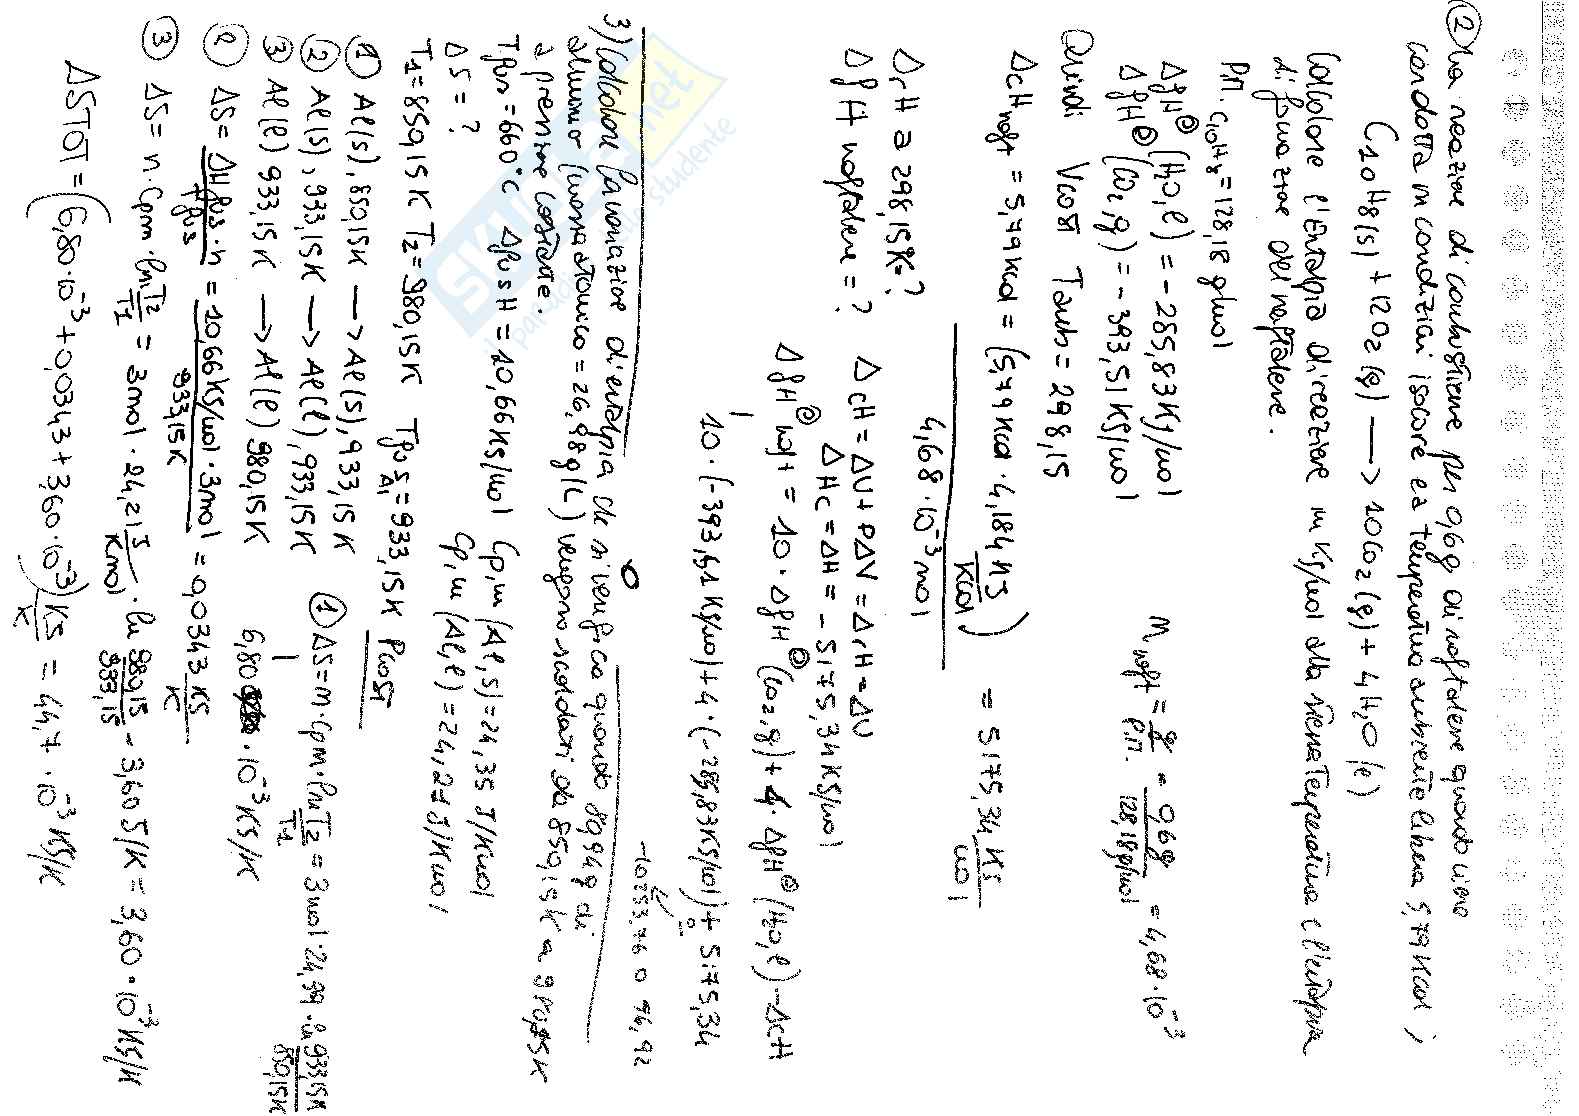 ② La reazione di combustione per 0,6g di naftalene quando viene
condotta in condizioni isocore ed a temperatura ambiente libera 5,79 Kcal ;
C10H8(s) + 12O2(g) → 10CO2(g) + 4H2O(l)
Calcolare l'Entalpia di reazione in KJ/mol alla stessa Temperatura e l'entalpia
di formazione del naftalene.
P.M. C10H8 = 128,18 g/mol
ΔfH⊖(H2O,l) = -285,83 KJ/mol
ΔfH⊖(CO2,g) = -393,51 KJ/mol
m naft = g/P.M. = 0,6g/128,18g/mol = 4,68·10⁻³
Quindi Vcost Tamb = 298,15
ΔcH naft = 5,79 Kcal = (5,79 Kcal · 4,184 KJ/Kcal) / 4,68·10⁻³ mol = 5175,34 KJ/mol
ΔrH a 298,15K = ?
ΔfH naftalene = ?
ΔcH = ΔU + PΔV = ΔrH = ΔU
ΔHc = ΔH = -5175,34 KJ/mol
ΔfH⊖ naft = 10 · ΔfH⊖(CO2,g) + 4 · ΔfH⊖(H2O,l) - ΔcH
10 · (-393,51 KJ/mol) + 4 · (-285,83 KJ/mol) + 5175,34
3) Calcolare la variazione di entropia che si verifica quando 80,94g di
alluminio (massa atomica = 26,98 g/L) vengono scaldati da 850,15K a 980,15K
a pressione costante.
Tfus = 660°C ΔfusH = 10,66 KJ/mol Cp,m (Al,s) = 24,35 J/Kmol
ΔS = ? Cp,m (Al,l) = 24,21 J/Kmol
T1 = 850,15K T2 = 980,15K Tfus Al = 933,15K Pcost
① Al(s), 850,15K → Al(s), 933,15K
② Al(s), 933,15K → Al(l), 933,15K
③ Al(l) 933,15K → Al(l) 980,15K
① ΔS = m·Cpm·ln T2/T1 = 3mol · 24,39 · ln 933,15K/850,15K
6,80 · 10⁻³ KJ/K
② ΔS = ΔHfus · n / Tfus = 10,66KJ/mol · 3mol / 933,15K = 0,0343 KJ/K
③ ΔS = n·Cpm·ln T2/T1 = 3mol · 24,21 J/Kmol · ln 980,15/933,15 = 3,60 J/K = 3,60·10⁻³ KJ/K
ΔSTOT = (6,80·10⁻³ + 0,0343 + 3,60·10⁻³) KJ/K = 44,7 · 10⁻³ KJ/K